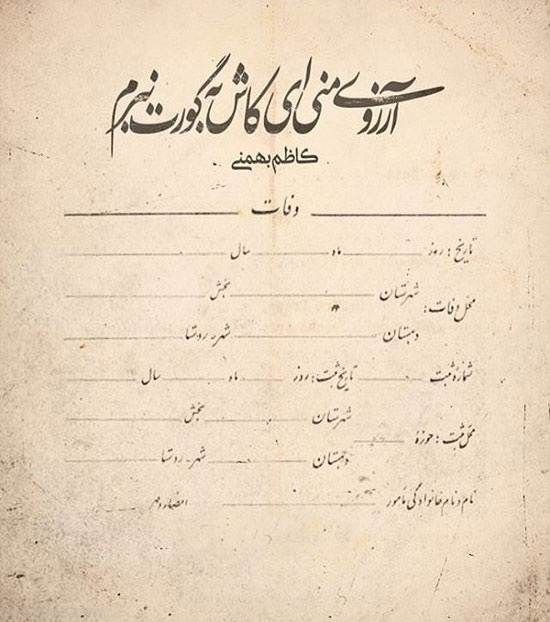 آرزوے منی ای کاش به گورت نبرم
کاظم بهمنی
وفات
تاریخ: روز ماه سال
محل وفات: شهرستان بخش
دهستان شهر - روستا
شمارهٔ ثبت تاریخ ثبت: روز ماه سال
محل ثبت: حوزهٔ شهرستان بخش
دهستان شهر - روستا
نام و نام خانوادگی مأمور امضاء و مهر